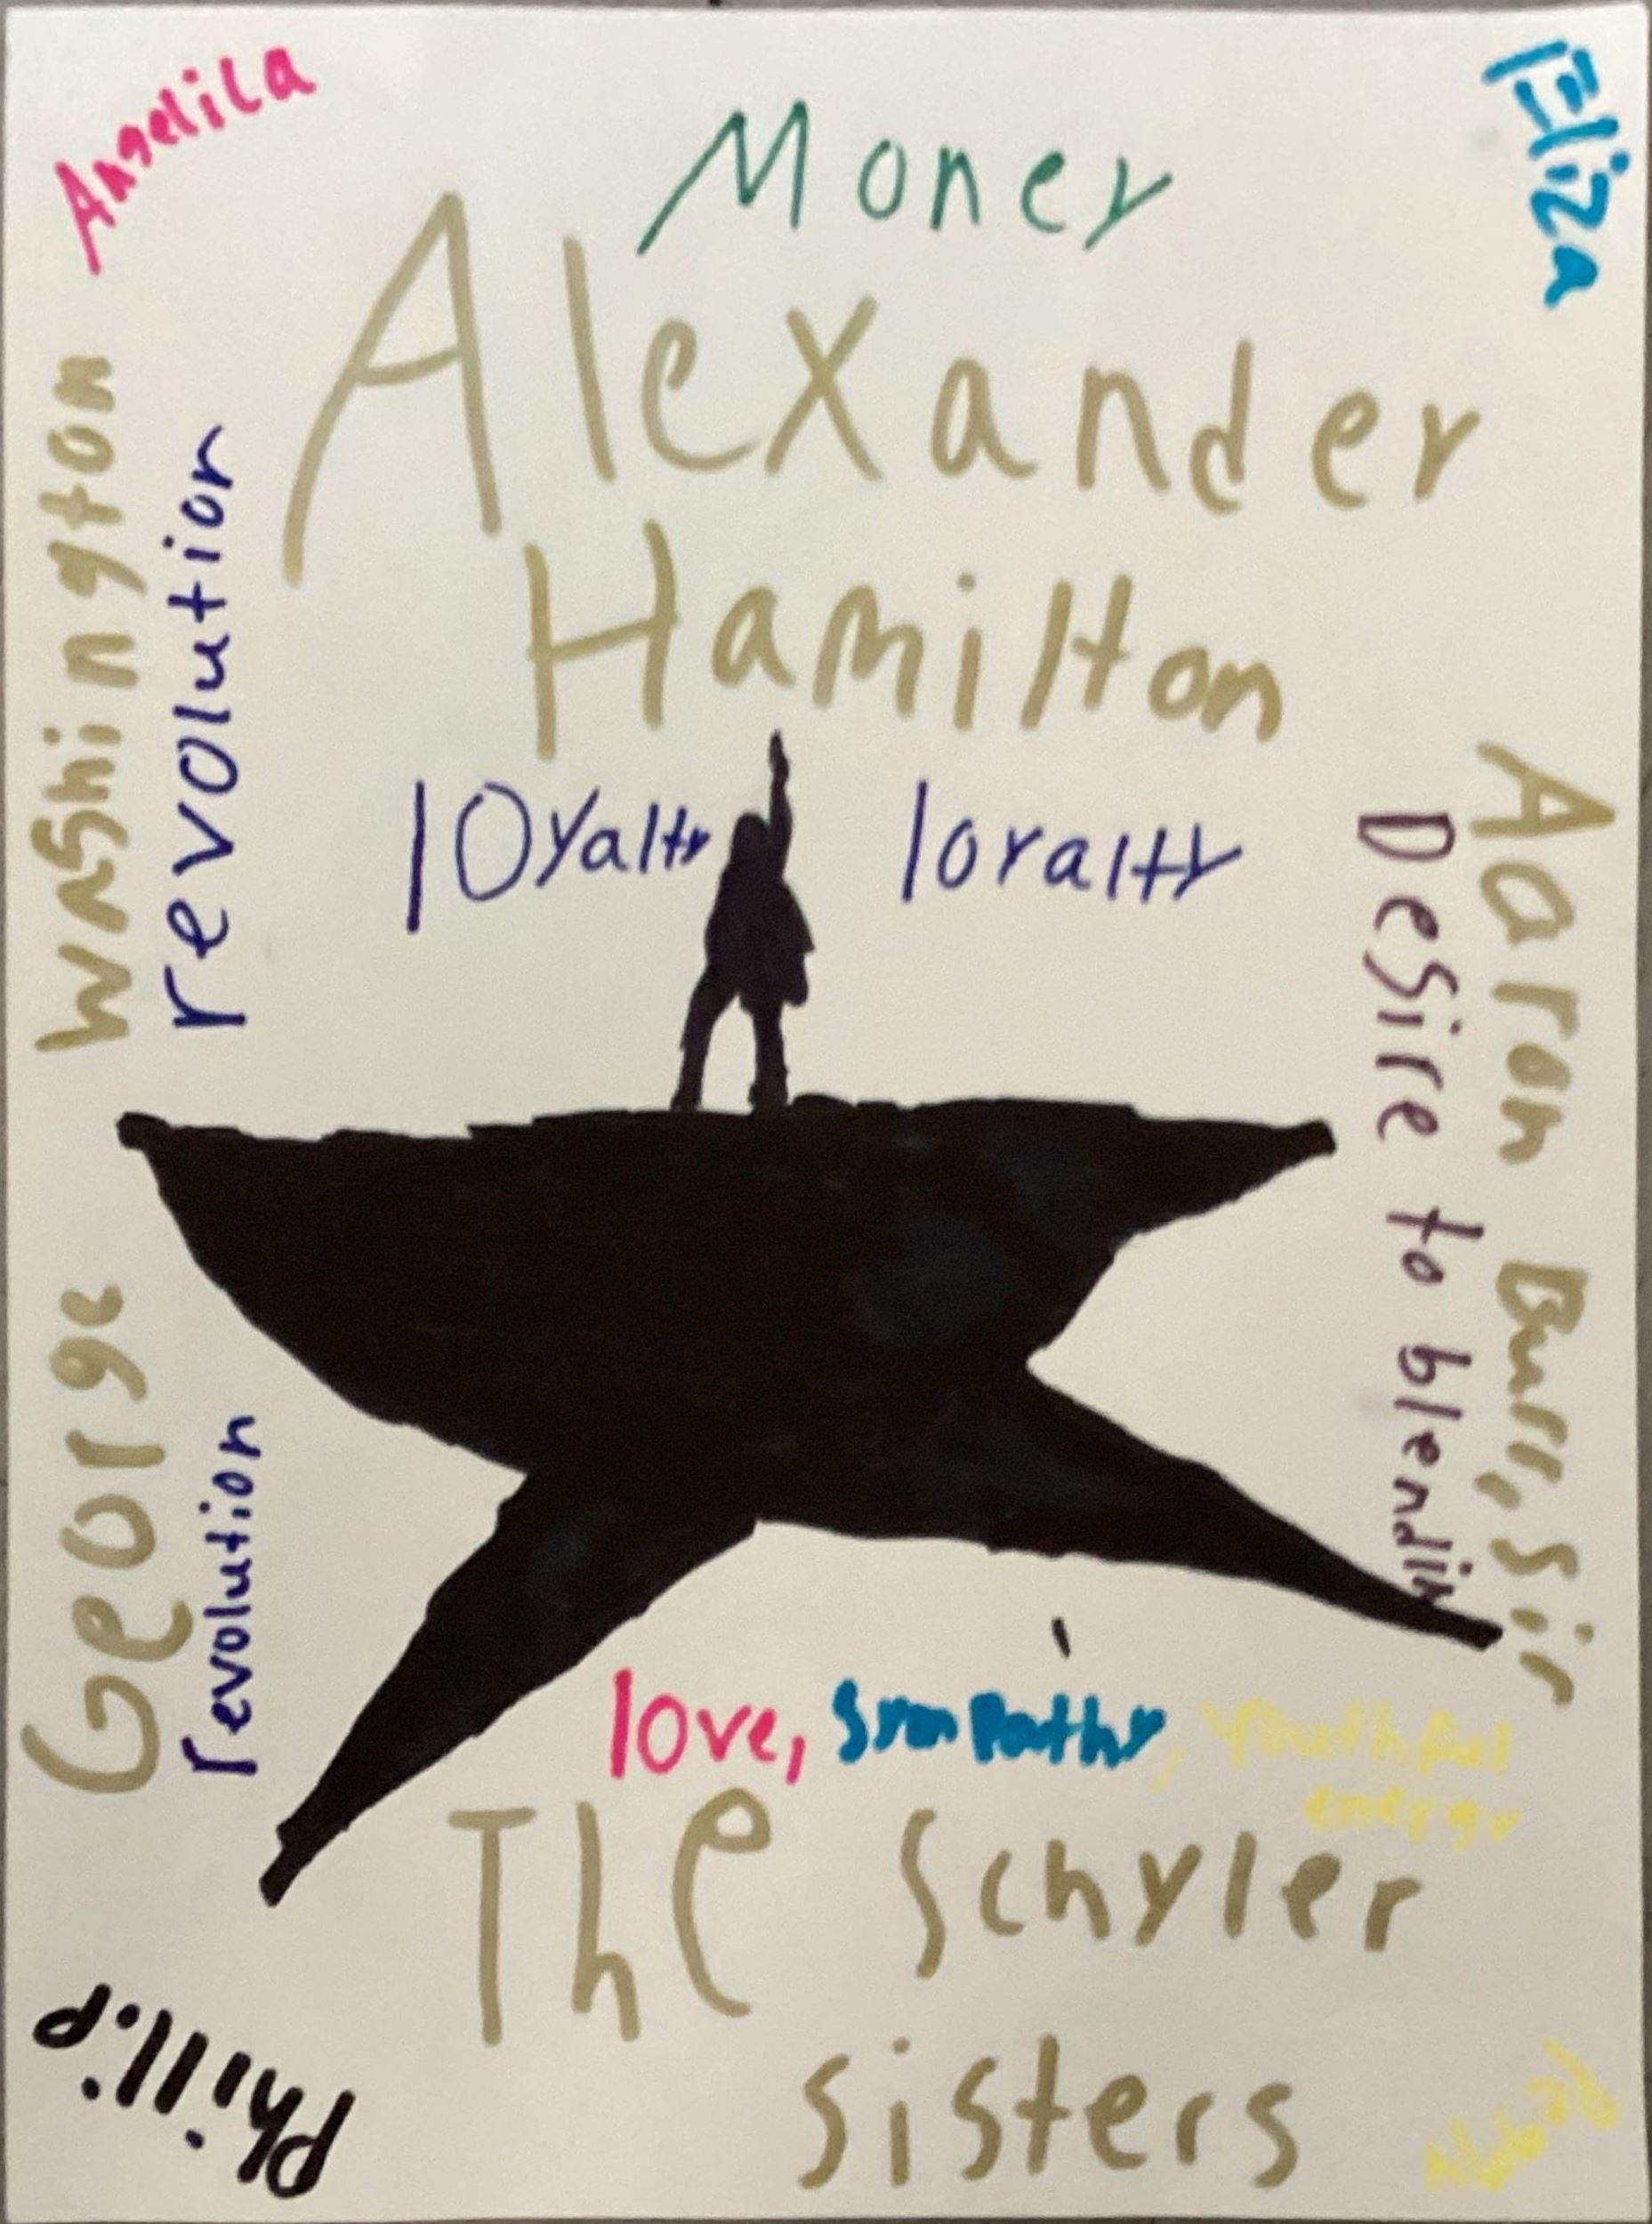 Angelila
Money
Eliza
Alexander
Hamilton
loyalty
loyalty
George Washington
revolution
revolution
Aaron Burr, Sir
Desire to blendin
love, Sympathy, Youthful
energy
The Schyler
sisters
Phillip